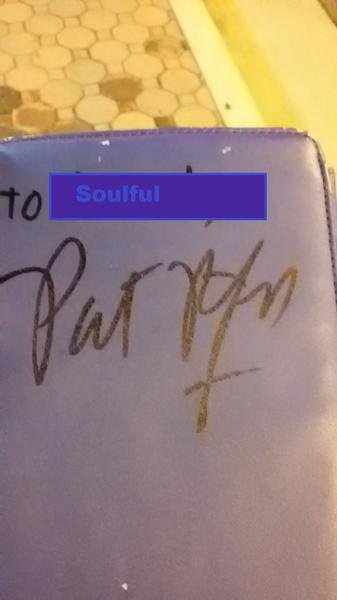 to Soulful
Pat